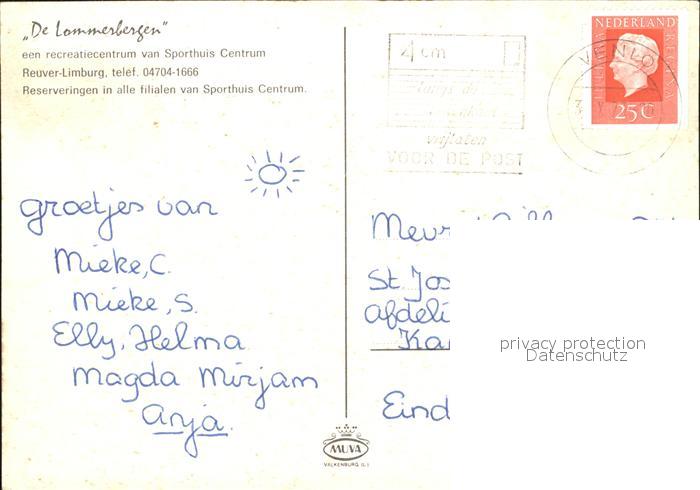 „De Lommerbergen"
een recreatiecentrum van Sporthuis Centrum
Reuver-Limburg, telef. 04704-1666
Reserveringen in alle filialen van Sporthuis Centrum.
4 cm
vrijlaten
VOOR DE POST
NEDERLAND
JULIANA REGINA
25 C
VENLO
groetjes van
Mieke, C.
Mieke, S.
Elly, Helma
Magda Mirjam
Anja.
Mevr
St. Jos
Afdeli
Ka
Eind
privacy protection
Datenschutz
MUVA
VALKENBURG (L.)